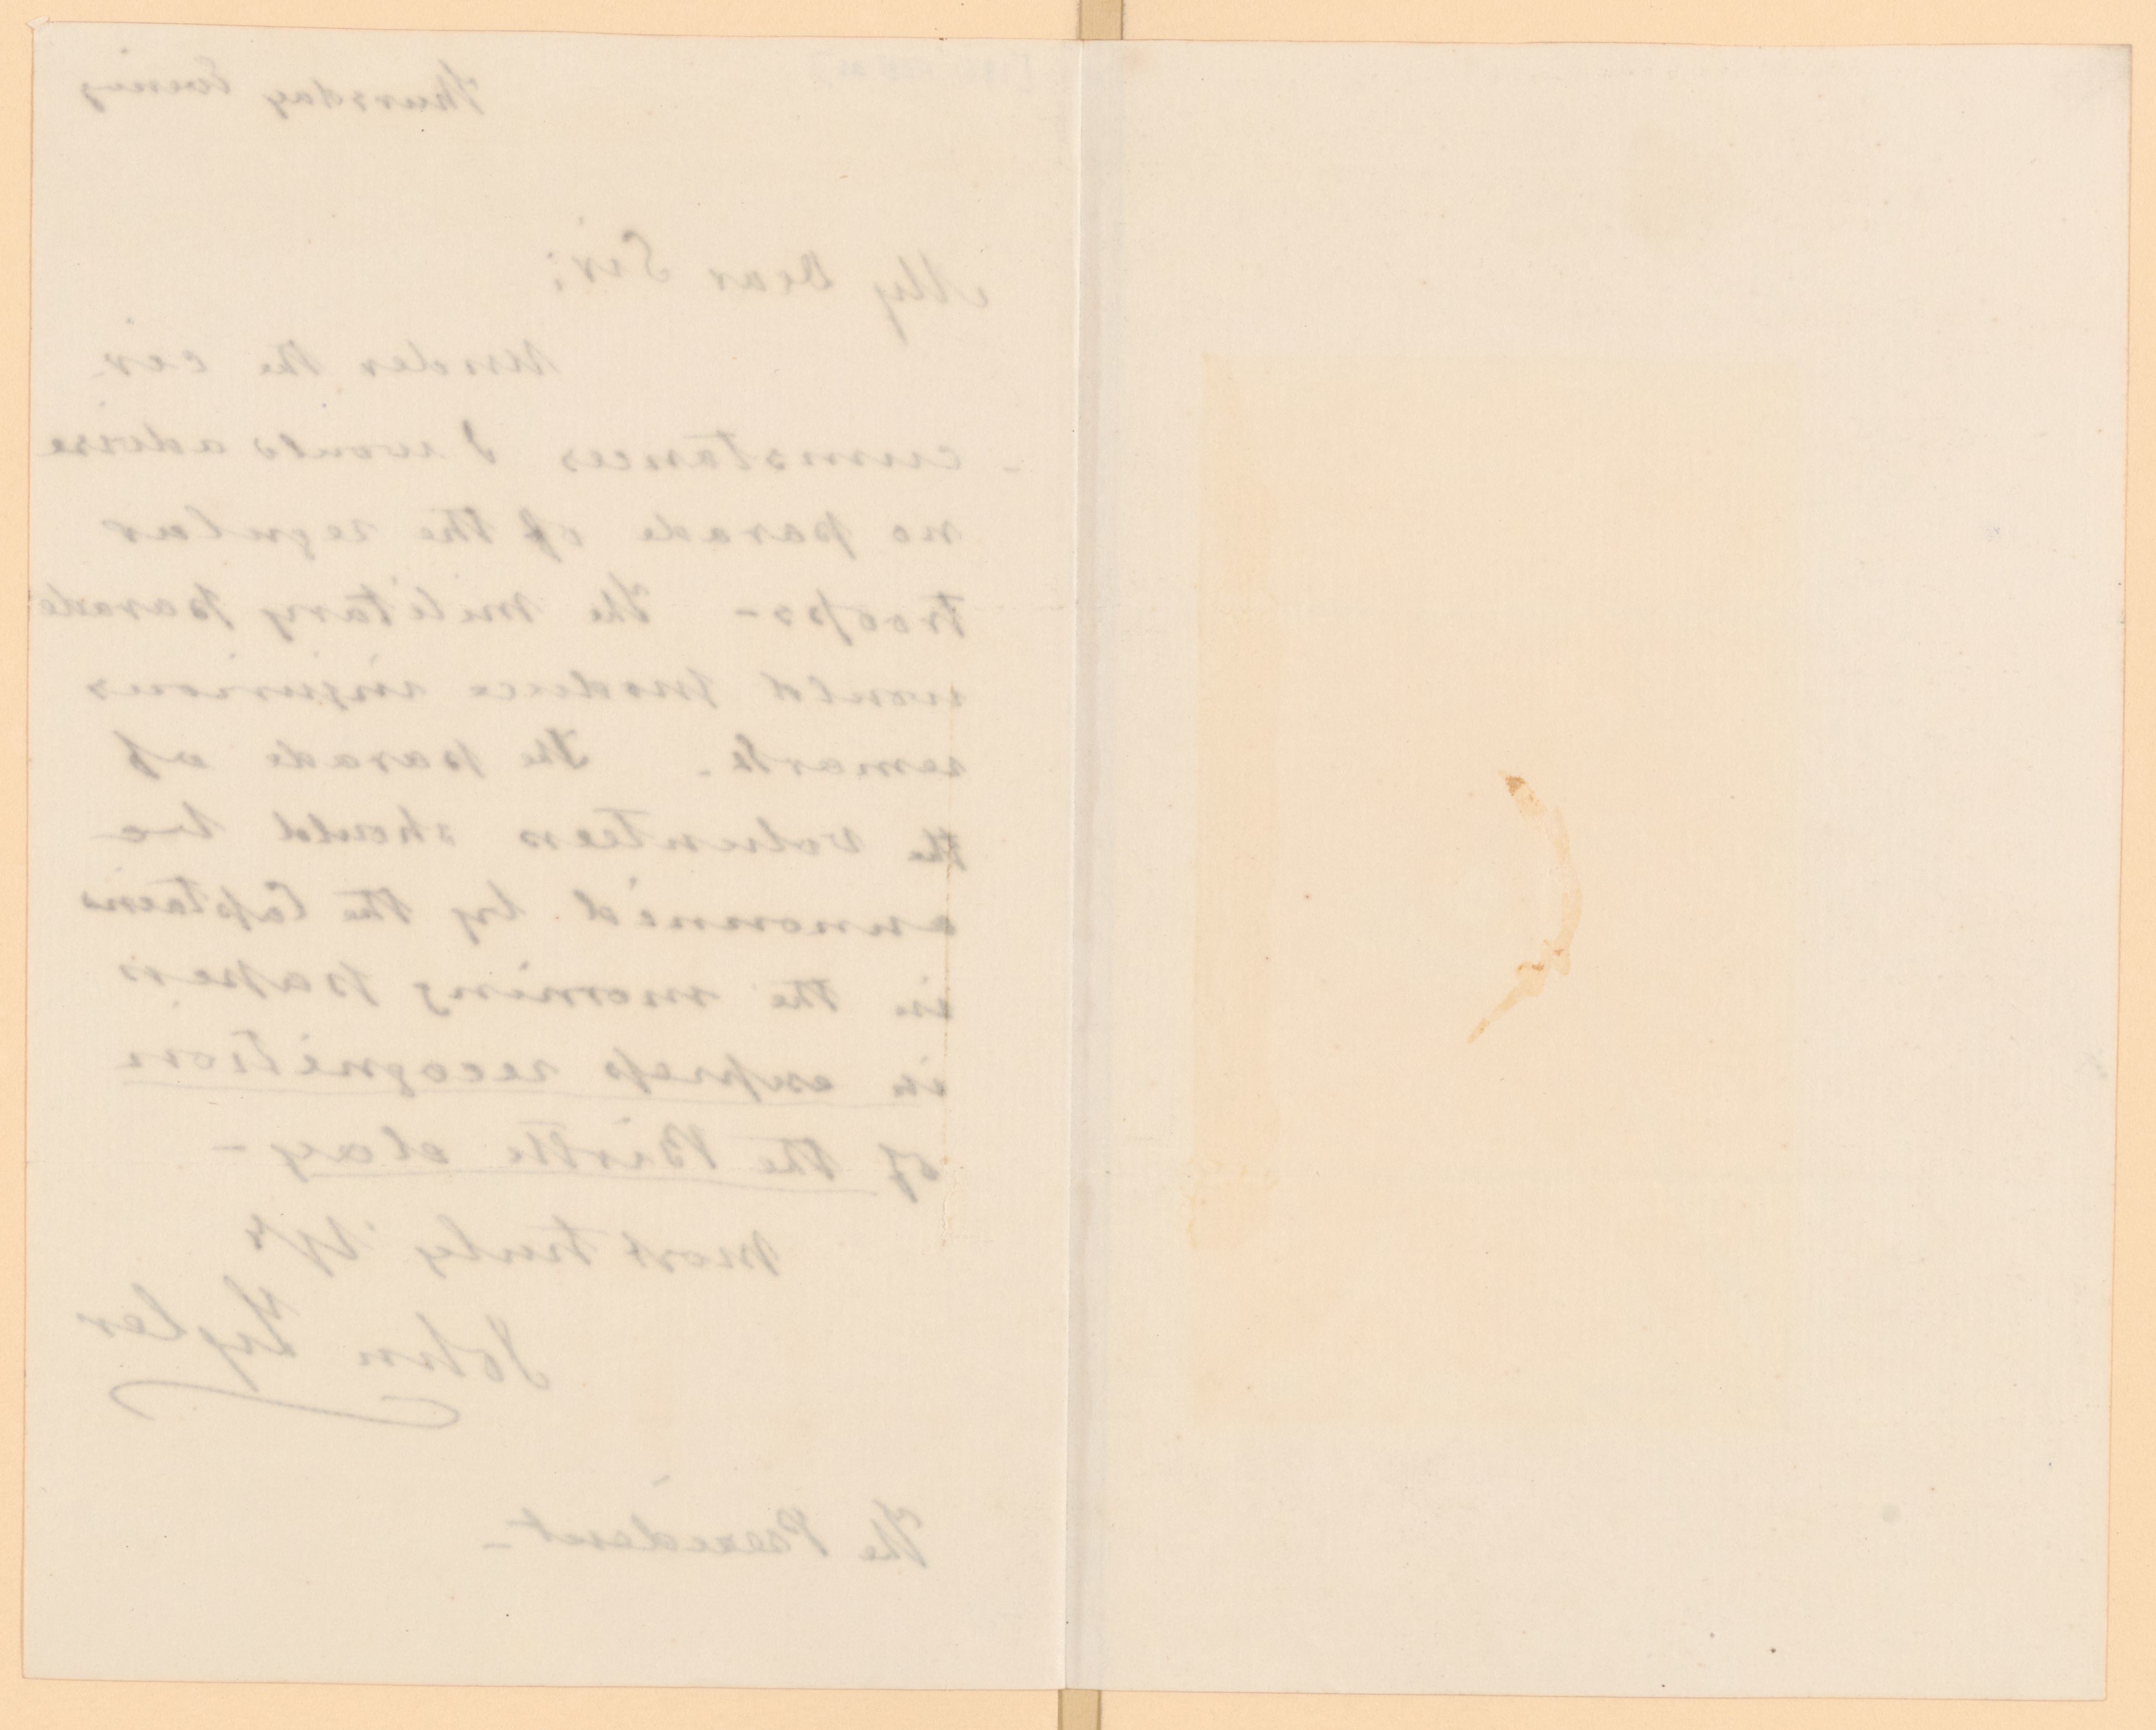 Thursday Evening
My Dear Sir;
Under the cir-
-cumstances I would advise
no parade of the regular
troops - The military parade
would produce injurious
remark - The parade of
the volunteers should be
announc'd by the Captains
in the morning papers
in express recognition
of the Birth day -
Most truly Yrs
John Tyler
The President -